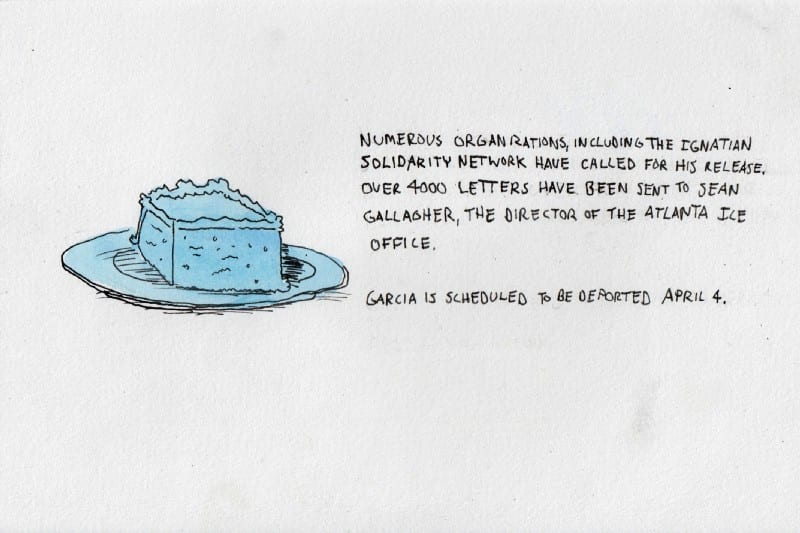 NUMEROUS ORGANIZATIONS, INCLUDING THE IGNATIAN
SOLIDARITY NETWORK HAVE CALLED FOR HIS RELEASE.
OVER 4000 LETTERS HAVE BEEN SENT TO SEAN
GALLAGHER, THE DIRECTOR OF THE ATLANTA ICE
OFFICE.
GARCIA IS SCHEDULED TO BE DEPORTED APRIL 4.